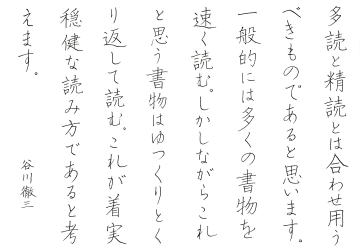 多読と精読とは合わせ用う
べきものであると思います。
一般的には多くの書物を
速く読む。しかしながらこれ
と思う書物はゆっくりとく
り返して読む。これが着実
穏健な読み方であると考
えます。
谷川徹三